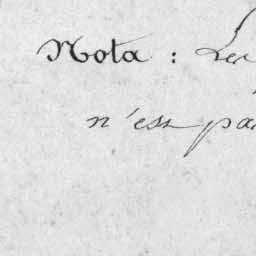 Nota : Le
n'est pas